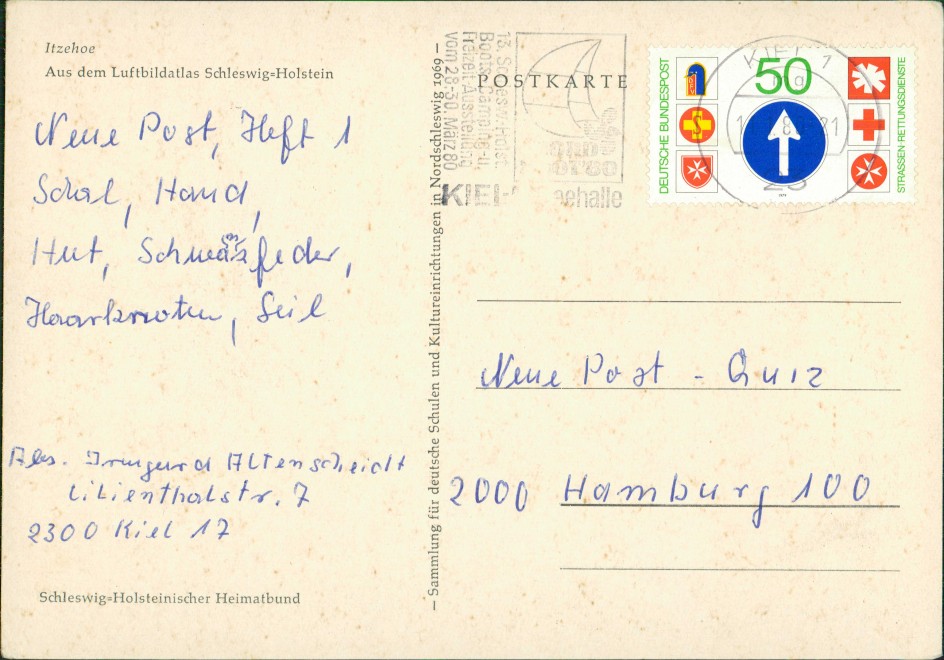 Itzehoe
Aus dem Luftbildatlas Schleswig-Holstein
Neue Post, Heft 1
Schal, Hand,
Hut, Schwanzfeder,
Haarknoten, Seil
Abs. Irmgard Altenscheidt
Lilienthalstr. 7
2300 Kiel 17
Schleswig-Holsteinischer Heimatbund
– Sammlung für deutsche Schulen und Kultureinrichtungen in Nordschleswig 1969 –
POSTKARTE
13. Schlesw.-Holst.
Boots-, Camping- u.
Freizeit-Ausstellung
vom 28.-30. März 80
KIEL
seehalle
DEUTSCHE BUNDESPOST
50
STRASSEN-RETTUNGSDIENSTE
S
1979
KIEL 1
mg
23
Neue Post - Quiz
2000 Hamburg 100